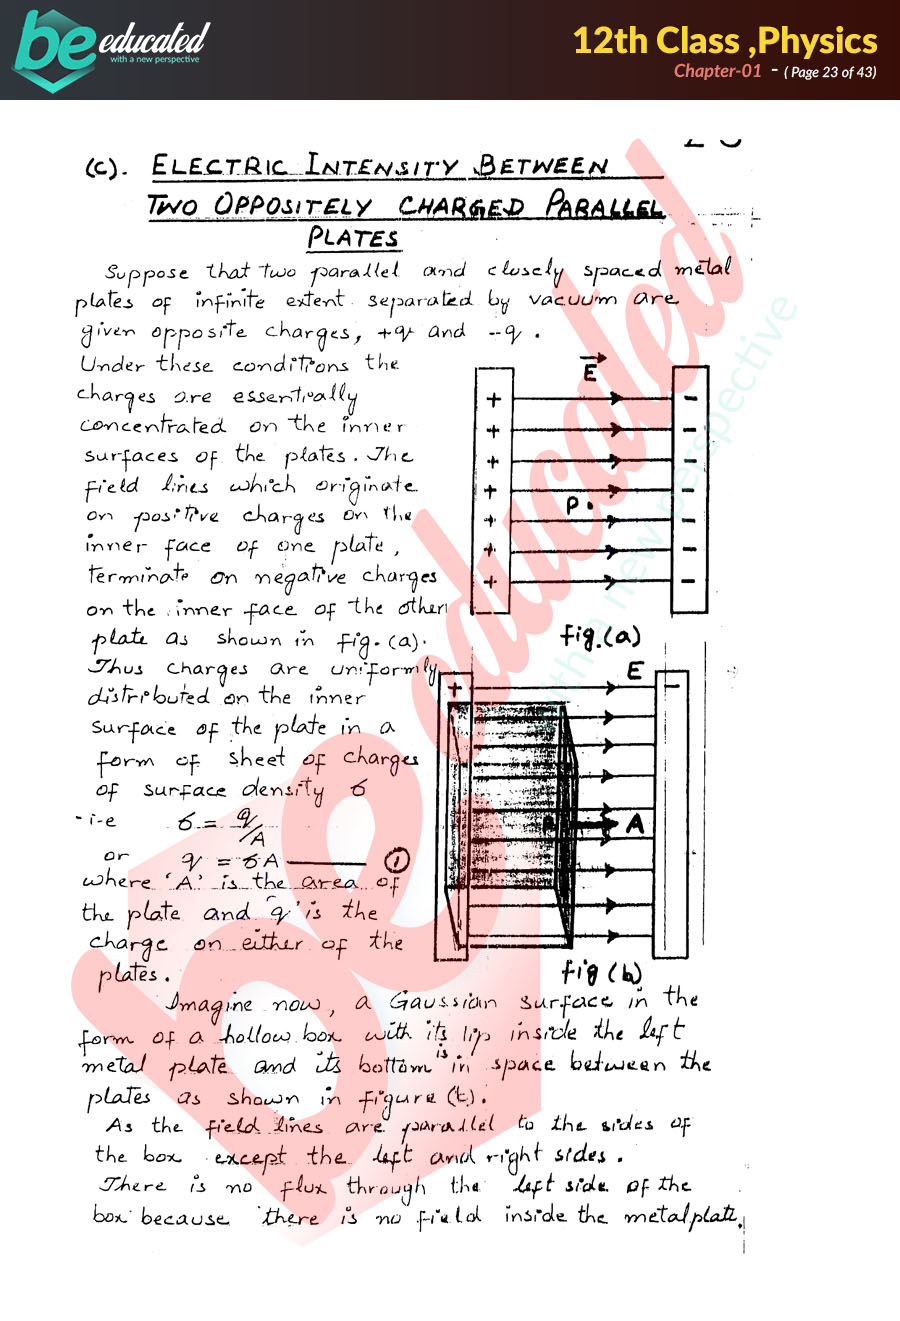 be educated
with a new perspective
12th Class ,Physics
Chapter-01 - ( Page 23 of 43)
(C). ELECTRIC INTENSITY BETWEEN
TWO OPPOSITELY CHARGED PARALLEL
PLATES
Suppose that two parallel and closely spaced metal
plates of infinite extent separated by vacuum are
given opposite charges, +q and -q .
Under these conditions the
charges are essentially
concentrated on the inner
surfaces of the plates. The
field lines which originate
on positive charges on the
inner face of one plate,
terminate on negative charges
on the inner face of the other
plate as shown in fig. (a).
Thus charges are uniformly
distributed on the inner
surface of the plate in a
form of sheet of charges
of surface density σ
i-e σ = q/A
or q = σA ——— ①
where 'A' is the area of
the plate and 'q' is the
charge on either of the
plates.
E
+ -
+ -
+ -
+ -
P .
+ -
+ -
+ -
fig.(a)
E
+ -
A
fig (b)
Imagine now, a Gaussian surface in the
form of a hollow box with its lip inside the left
metal plate and its bottom is in space between the
plates as shown in figure (b).
As the field lines are parallel to the sides of
the box except the left and right sides.
There is no flux through the left side of the
box because there is no field inside the metal plate.
be educated
with a new perspective